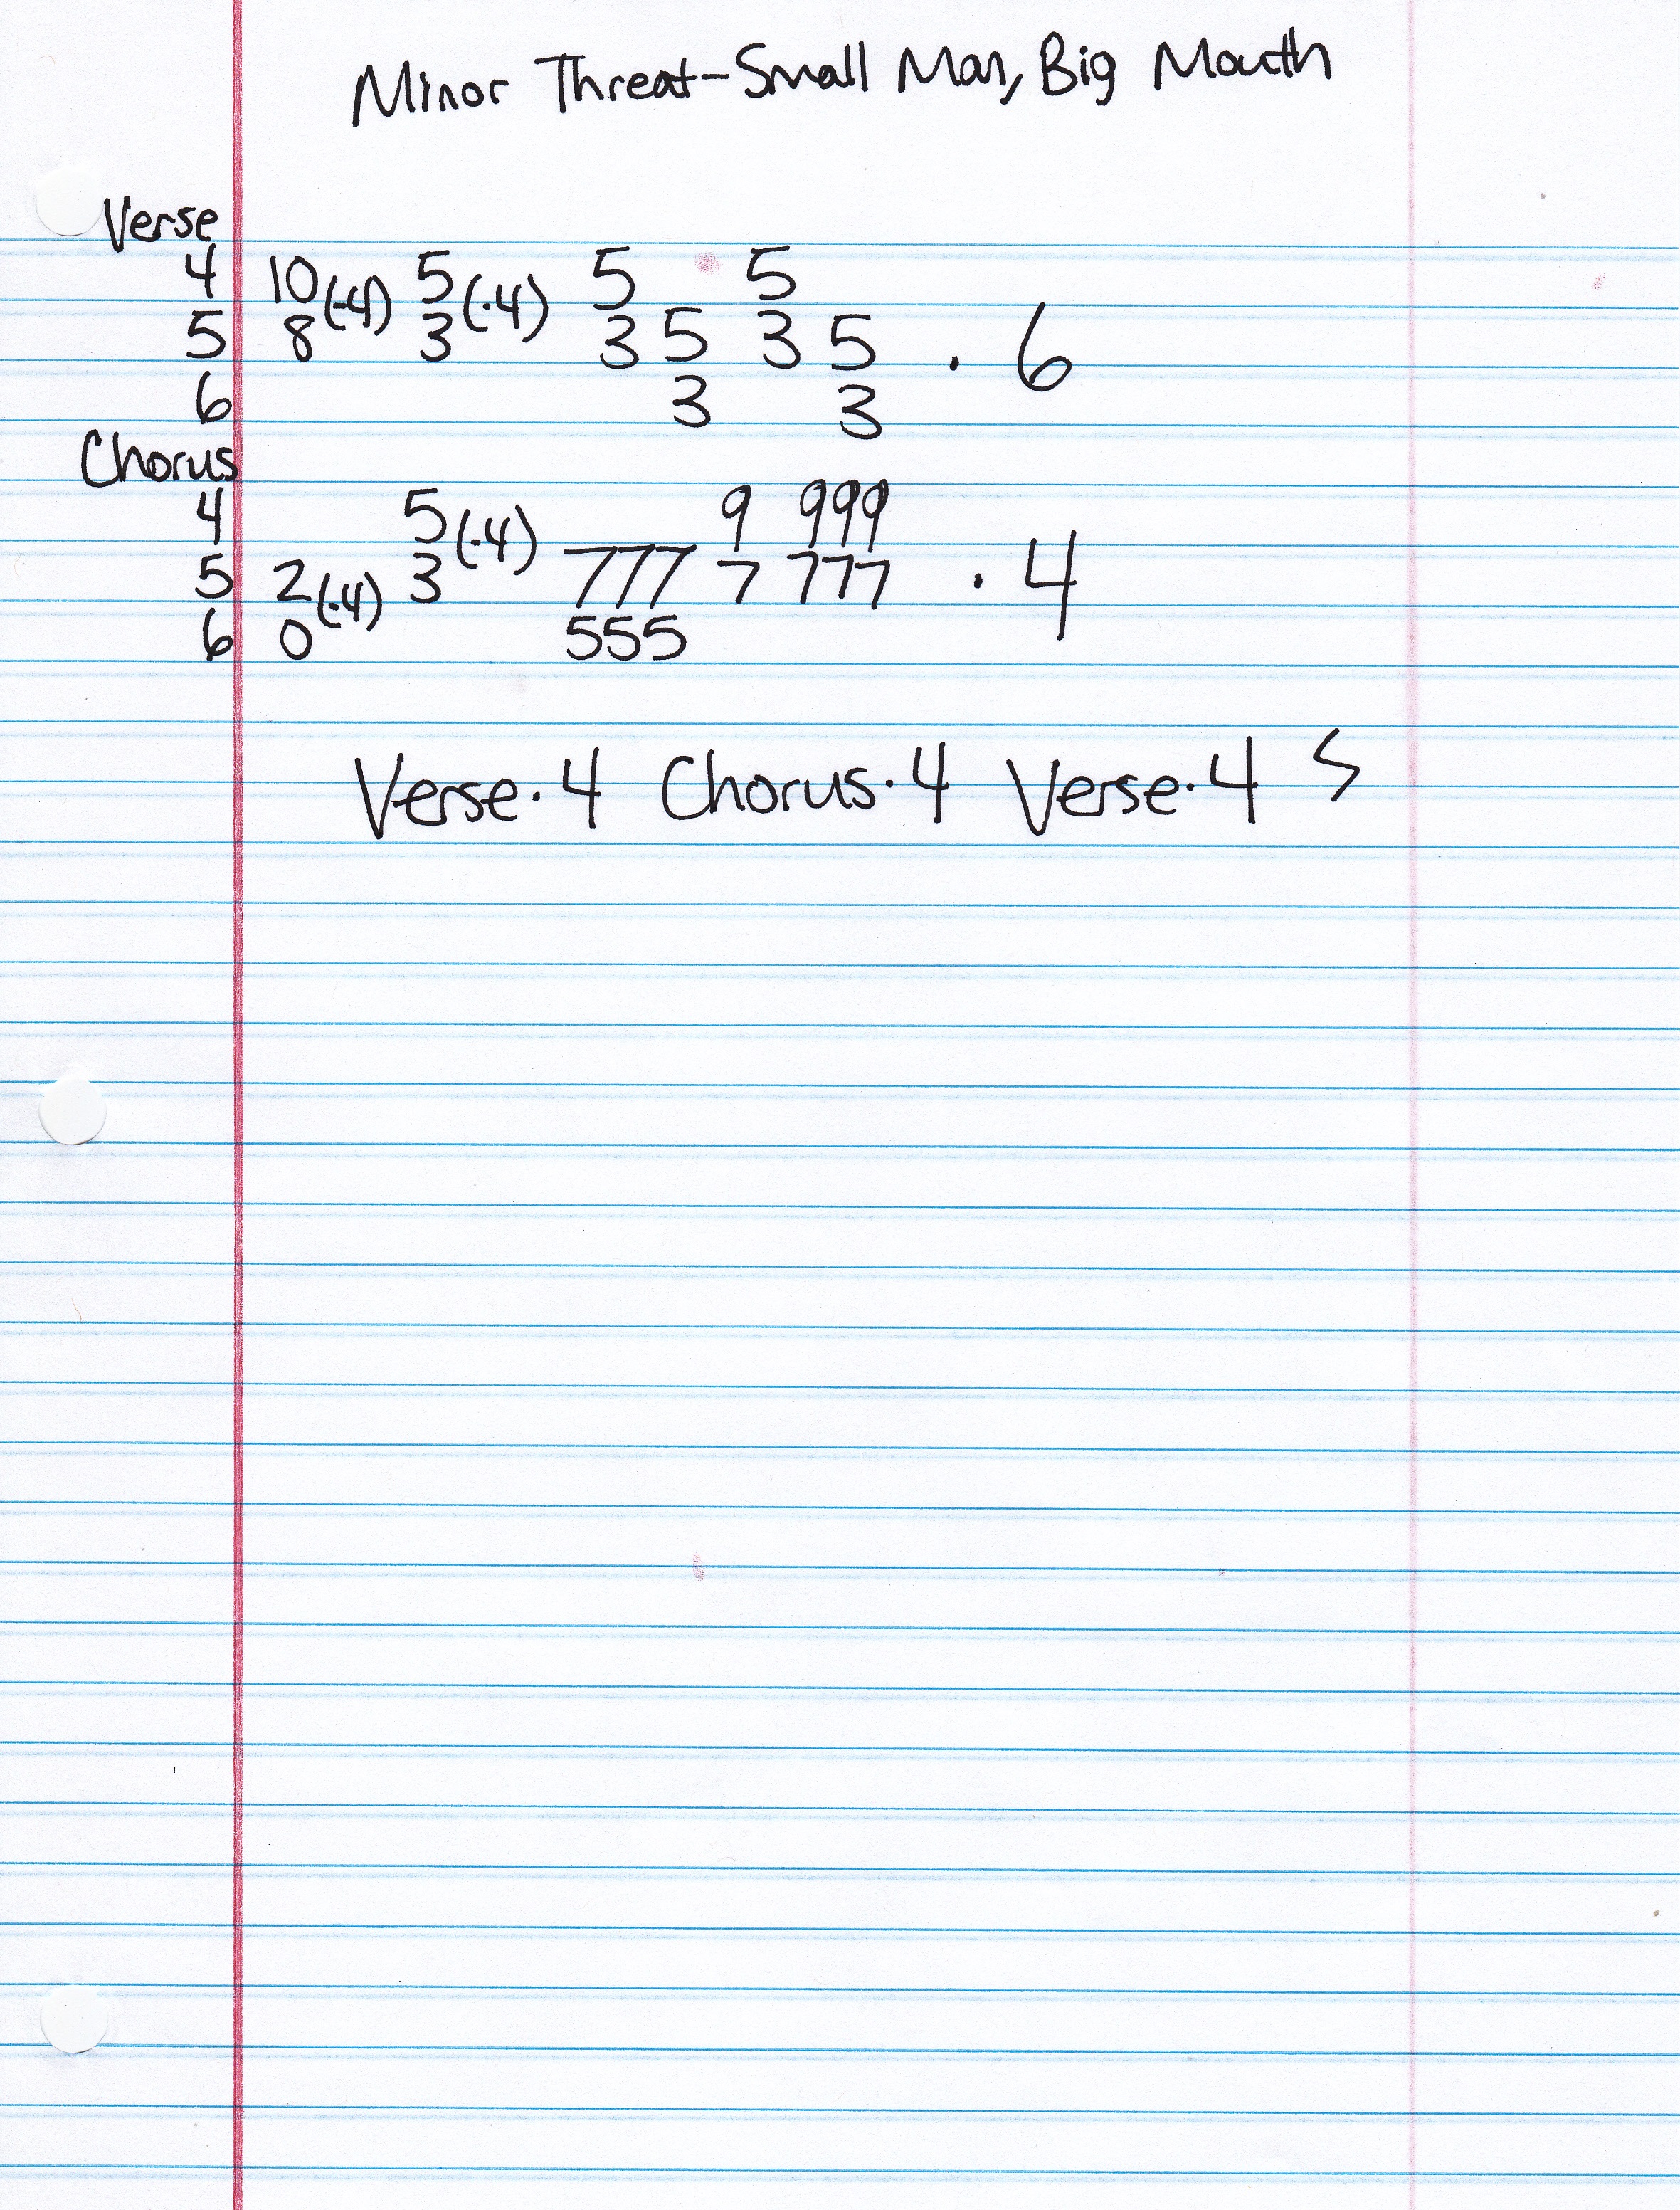 Minor Threat-Small Man, Big Mouth
Verse
4 10(·4) 5(·4) 5 5
5 8 3 3 5 3 5 · 6
6 3 3
Chorus
4 5(·4) 9 999
5 2(·4) 3 777 7 777 · 4
6 0 555
Verse·4 Chorus·4 Verse·4